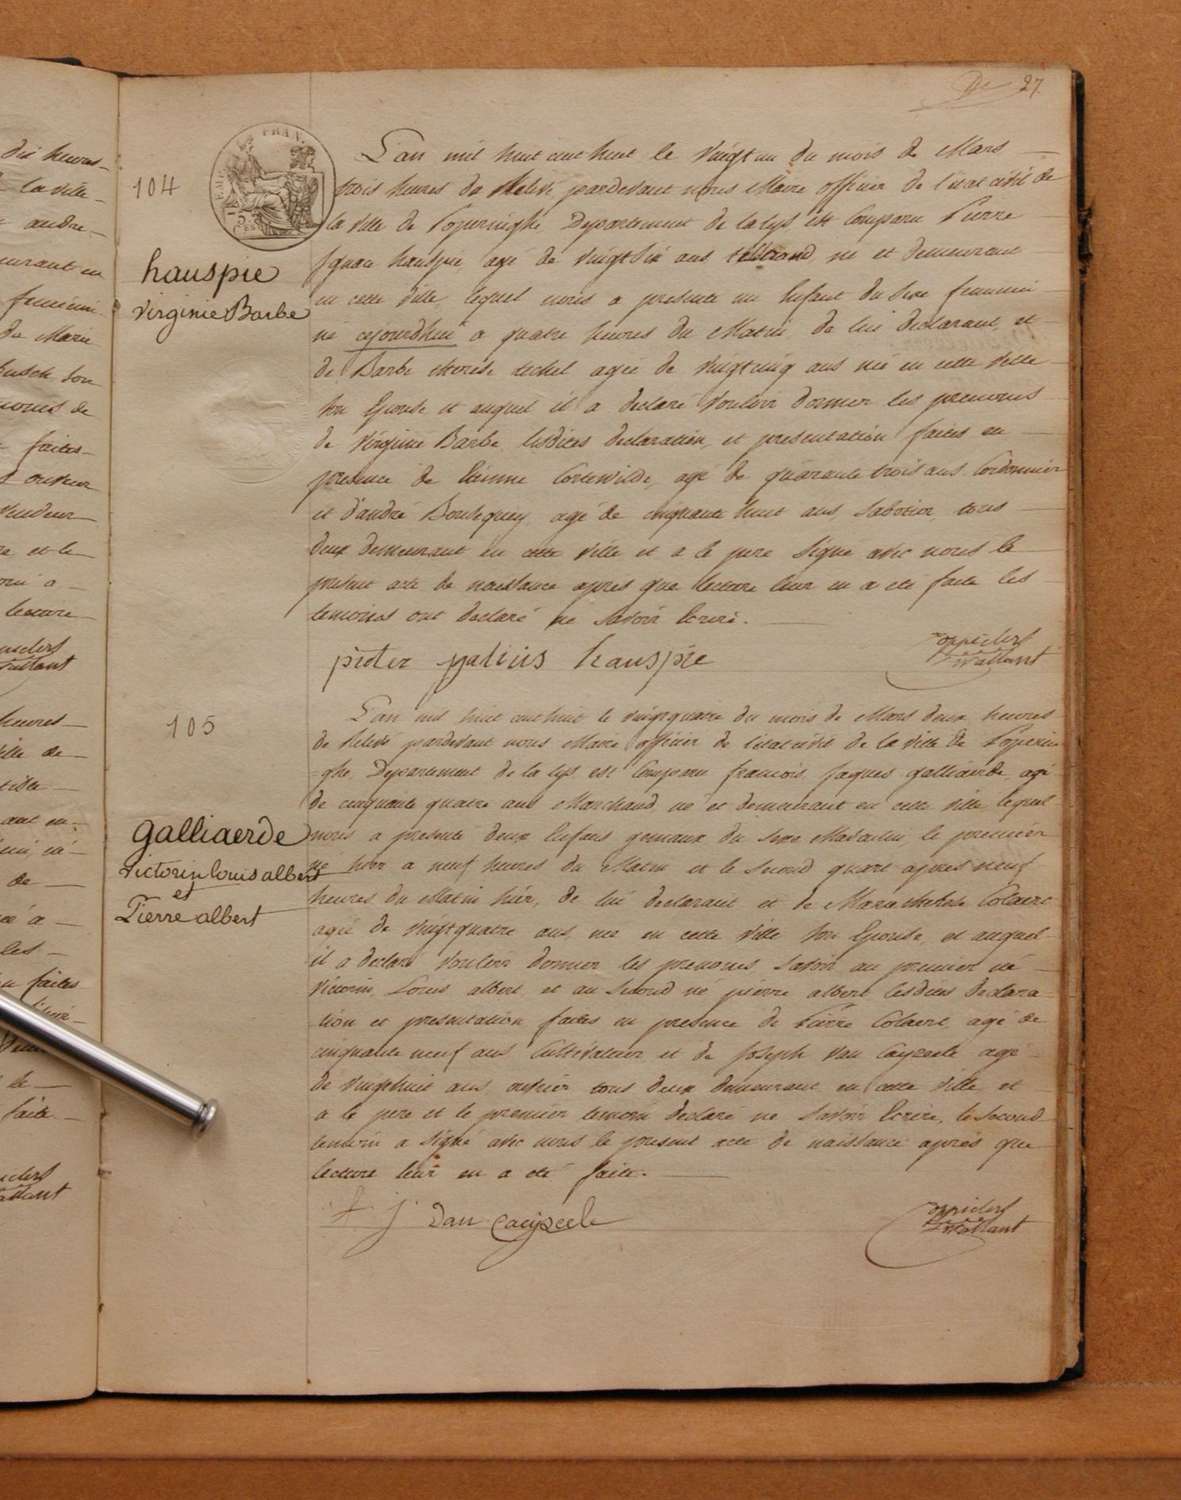 27
104
hauspie
Virginie Barbe
L'an mil huit cent huit le vingt un du mois de Mars
trois heures de Relevé pardevant nous Maire officier de l'etat civil de
la ville de Poperinghe Departement de la Lys est Comparu Pierre
hauspie agé de vingt six ans né et demeurant
en cette ville lequel nous a presenté un Enfant du Sexe feminin
né cejourdhui a quatre heures du Matin de lui declarant et
de Barbe therese agée de vingt cinq ans née en cette ville
son Epouse et auquel il a declaré vouloir donner les prenoms
de Virginie Barbe lesdites declaration et presentation faites en
presence de Cortewilde, agé de quarante trois ans Cordonnier
et d'andré agé de cinquante huit ans, Sabotier, tous
deux demeurant en cette ville et a le pere Signé avec nous le
present acte de naissance apres que lecture leur en a eté faite les
temoins ont declaré ne Savoir Ecrire.
pieter hauspie
105
galliaerde
victorin louis albert
et
Pierre albert
L'an mil huit cent huit le vingt quatre du mois de Mars deux heures
de Relevé pardevant nous Maire officier de l'etat civil de la ville de Poperin
ghe, Departement de la Lys est Comparu francois Jaques galliaerde agé
de cinquante quatre ans Marchand né et demeurant en cette ville lequel
nous a presenté deux Enfans gemaux du Sexe Masculin le premier
né hier a neuf heures du Matin et le Second quart apres neuf
heures du Matin hier, de lui declarant et de Marie therese Colaert
agée de vingt quatre ans née en cette ville Son Epouse, et auquel
il a declaré vouloir donner les prenoms Savoir au premier né
Victorin Louis albert et au Second né pierre albert lesdites declara
tion et presentation faites en presence de Pierre Colaert agé de
cinquante neuf ans Cultivateur et de Joseph van Cayzeele agé
de vingt huit ans ouvrier tous deux demeurant en cette ville et
a le pere et le premier temoin declaré ne Savoir Ecrire, le Second
temoin a Signé avec nous le present acte de naissance apres que
lecture leur en a eté faite.
f j van Cayzeele